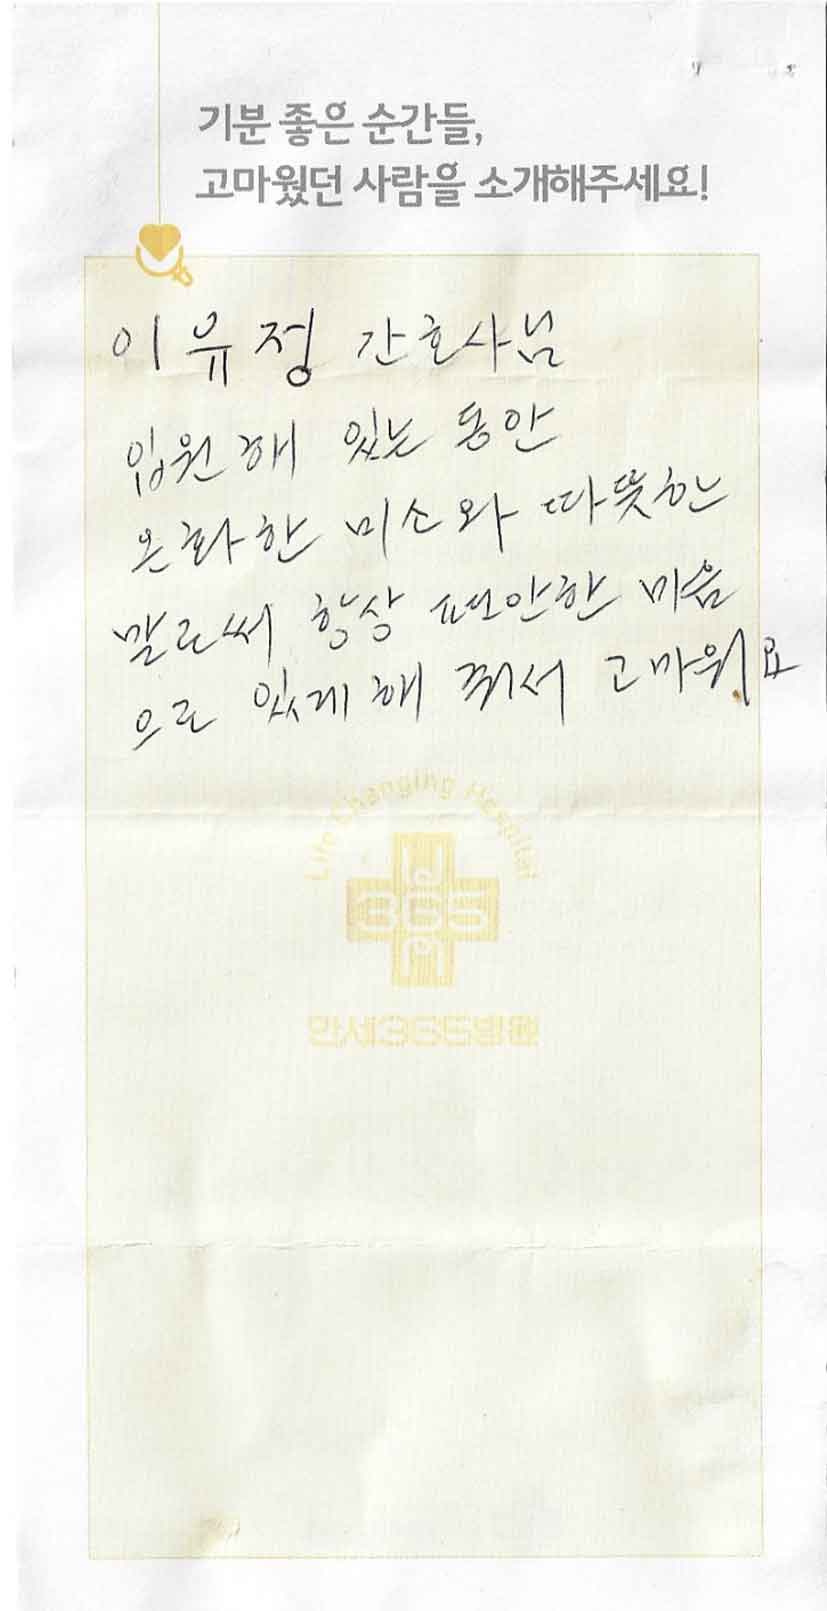 기분 좋은 순간들,
고마웠던 사람을 소개해주세요!
이유정 간호사님
입원해 있는 동안
온화한 미소와 따뜻한
말로써 항상 편안한 마음
으로 있게 해 줘서 고마워요
Life Changing Hospital
365